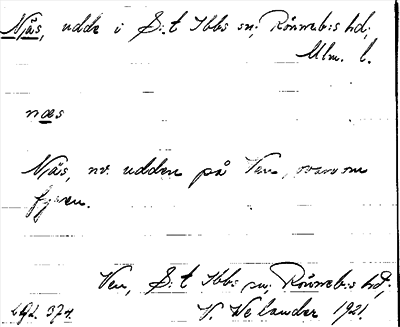 Njäs, udde i S:t Ibbs sn, Rönneb:s hd,
Mlm. l.
næs
Njäs, nv. udden på Ven, ovanom
fyren.
Ven, S:t Ibbs sn, Rönneb:s hd,
V. Welander 1921.